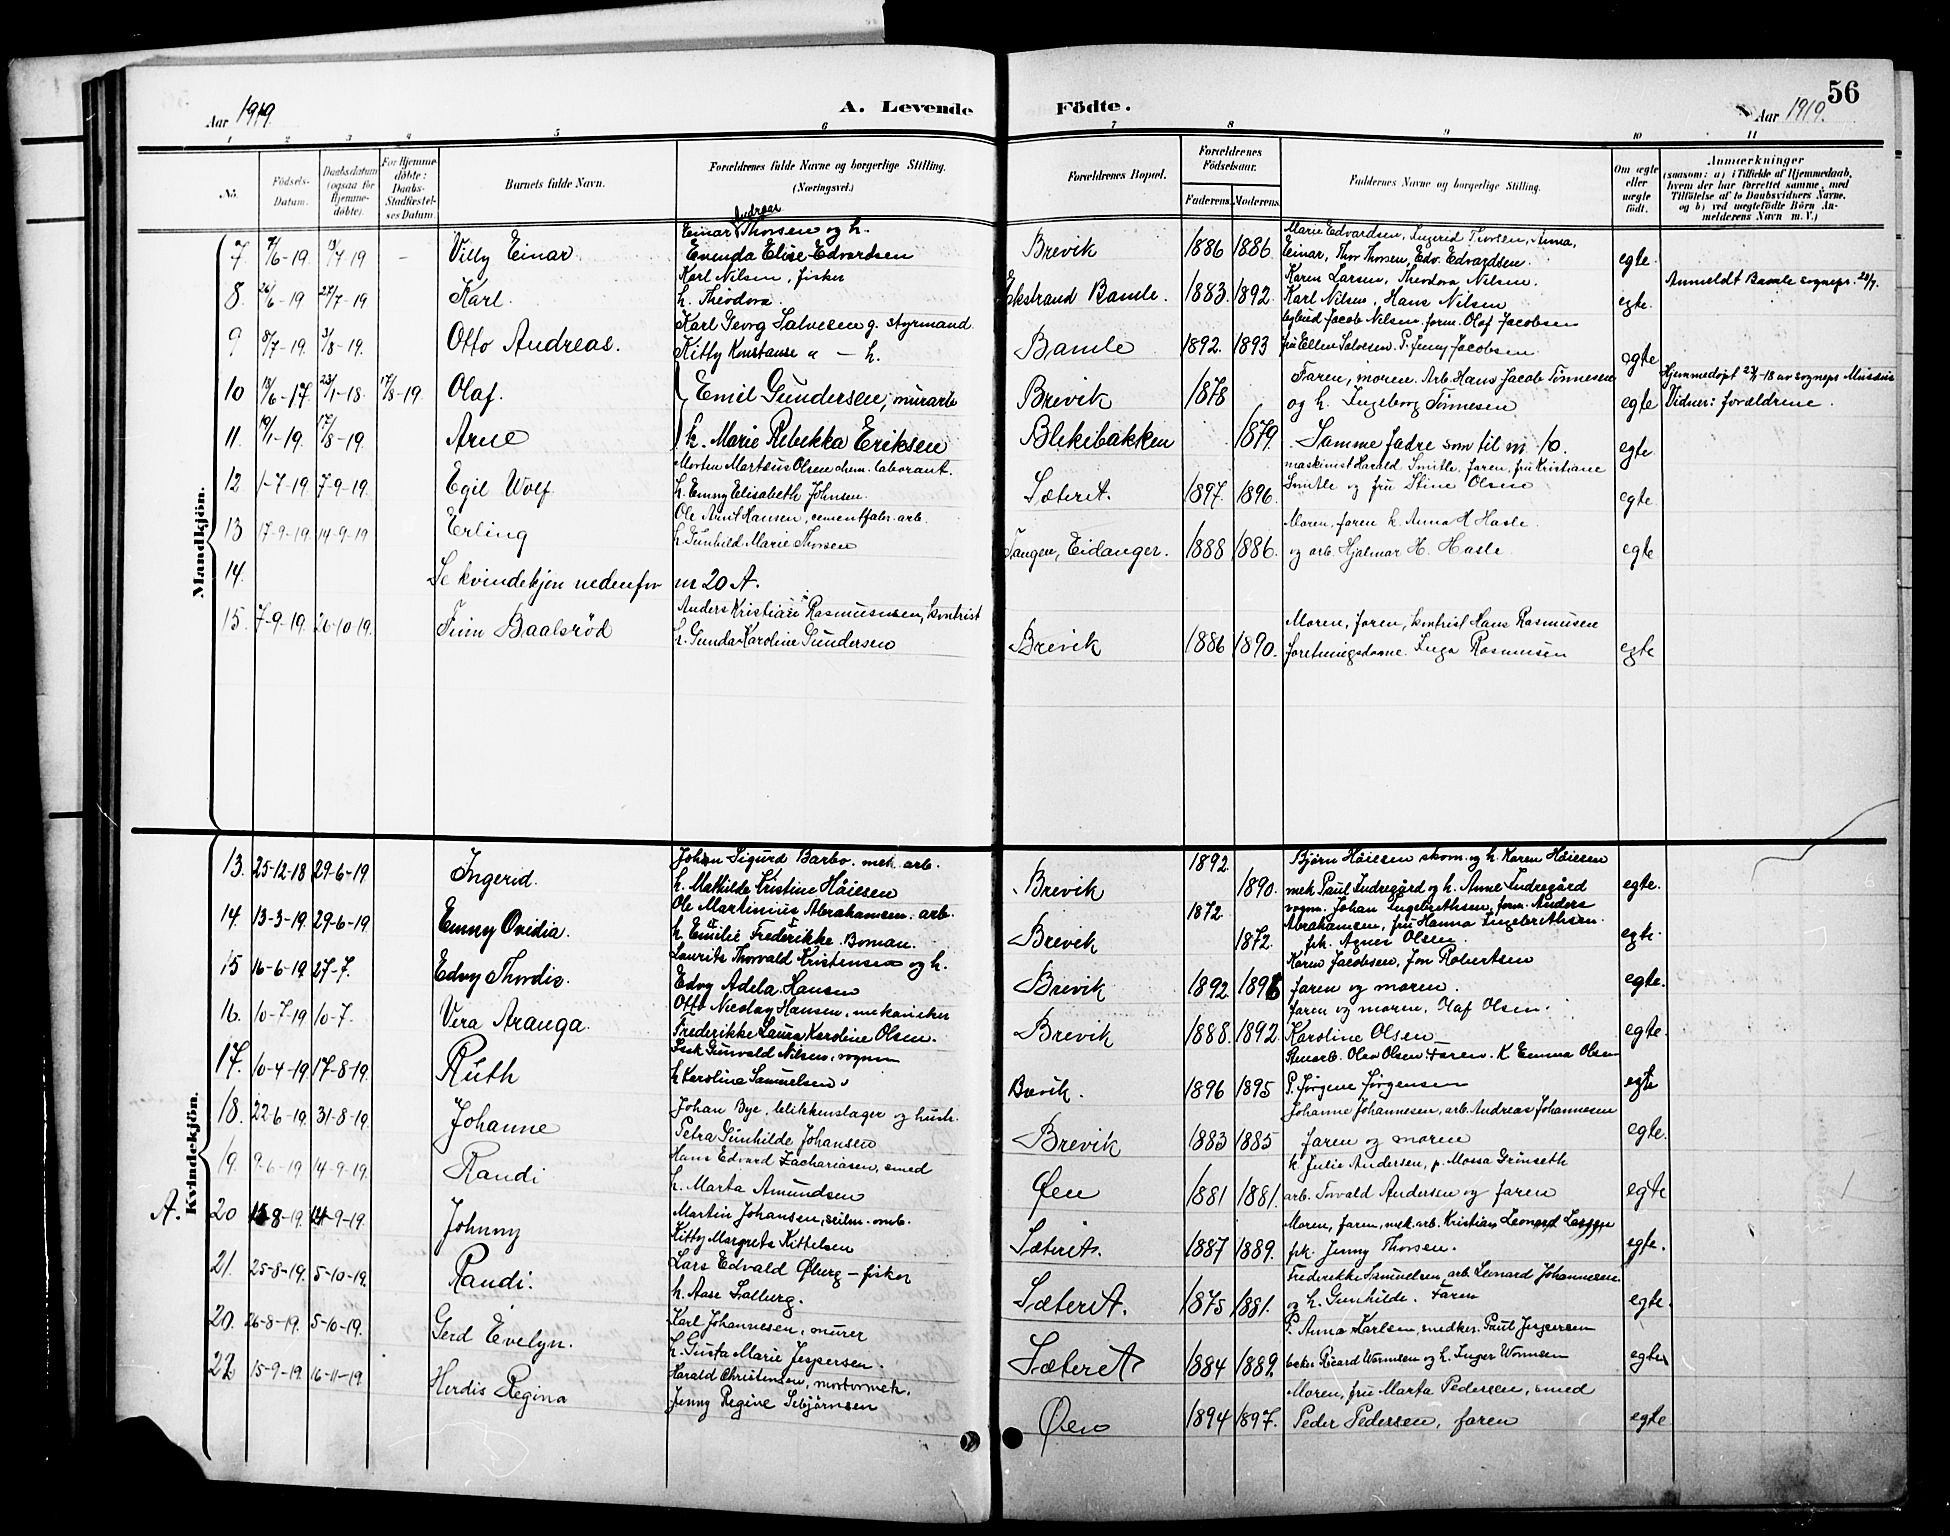 56
Aar 1919.
A. Levende Födte.
Aar 1919.
1 2 3 4 5 6 7 8 9 10 11
No. Födsels-Datum. Daabsdatum (ogsaa for Hjemmedøbte). For Hjemmedøbte: Daabs-Stadfæstelses Datum. Barnets fulde Navn. Forældrenes fulde Navne og borgerlige Stilling. (Næringsvei.) Forældrenes Bopæl. Forældrenes Födselsaar. Faderens. Moderens. Faddernes Navne og borgerlige Stilling. Om ægte eller uægte födt. Anmærkninger
(saasom: a) i Tilfælde af Hjemmedaab, hvem der har forrettet samme, med Tilföielse af to Daabsvidners Navne, og b) ved uægtefödte Börn Anmelderens Navn m. V.)
Mandkjön.
Andreas
7 7/6-19. 13/7 19 - Villy Einar Einar Thorsen og h. Brevik 1886 1886 Marie Edvardsen, Ingerid Thorsen, Anna, egte.
Evenda Elise Edvardsen Einar, Thor Thorsen, Edv. Edvardsen.
8 26/6-19 27/7-19 Karl. Karl Nilsen, fisker Ekstrand Bamle. 1883. 1892. Karen Larsen, Theodora Nilsen. egte. Anmeldt Bamle sognepr. 28/7.
h. Theodora. Karl Nilsen, Hans Nilsen
9 8/7-19. 3/8-19. Otto Andreas. Karl Georg Salvesen g. styrmand Bamle 1892. 1893 bybud Jacob Nilsen, form. Olaf Jacobsen egte
Kitty Konstanse " - h. fru Ellen Salvesen. P. Jenny Jacobsen
10 13/6-17. 23/1-18. 17/8-19. Olaf. Emil Gundersen, murarb Brevik 1878 Faren, moren. Arb. Hans Jacob Tønnesen egte Hjemmedøpt 23/1-18 av sognepr Musæus
og h. Ingeborg Tønnesen. Vidner: forældrene.
11. 19/1-19. 17/8-19. Arne h. Marie Rebekka Eriksen Blekibakken 1879. Samme fadre som til nr. 10. egte
12 1-7-19 7-9-19. Egil Wolf Morten Marteus Olsen chem. laborant. Sæteret. 1897. 1896. maskinist Harald Smitle, faren, fru Kristiane egte.
h. Emmy Elisabeth Johnsen. Smitle og fru Stine Olsen
13 17-9-19. 14-9-19 Erling Ole Arnt Hansen, cementfabr. arb. Tangen, Eidanger. 1888 1886. Moren, faren h. Anna H Hasle. egte
h. Gunhild Marie Thorsen og arb. Hjalmar H. Hasle.
14. Se kvindekjøn nedenfor nr 20 A.
15. 7-9-19. 26-10-19. Finn Baalsrød Anders Kristian Rasmussen, kontrist Brevik 1886 1890. Moren, faren, kontrist Hans Rasmussen egte
h. Gunda Karoline Gundersen foretningsdame. Inga Rasmussen
Kvindekjön.
13. 25-12-18 29-6-19 Ingerid. Johan Sigurd Barbo. mek. arb. Brevik 1892 1890. Bjørn Høiesen skom. og h. Karen Høiesen egte.
h. Mathilde Kristine Høiesen mek Paul Indregård og h. Anne Indregård
14. 13-3-19. 29-6-19. Emmy Ovidia. Ole Martinius Abrahamsen. arb. Brevik 1872. 1872. vogm. Johan Ingebrethsen, form. Anders egte.
h. Emilie Frederikke Boman. Abrahamsen, fru Hanna Ingebrethsen. frk. Agnes Olsen.
15 16-6-19 27-7. Edvy Thordis. Laurits Thorvald Kristensen og h. Brevik 1892. 1896 Karen Jacobsen, Jon Robertsen egte.
Edvy Adela. Hansen faren og moren.
16. 10-7-19 10-7. Vera Aranga. Otto Nicolay Hansen, mekaniker Brevik 1888. 1892. faren og moren, Olaf Olsen. egte.
Frederikke Laura Karoline Olsen. Karoline Olsen
17. 10-4-19 17-8-19. Ruth Isak Grinvald Nilsen, vogm Brevik. 1896 1895 Stenarb. Olav Olsen Faren. K Emma Olsen egte
h Karolina Samuelsen P. Jørgine Jørgensen
18. 22-6-19. 31-8-19. Johanne Johan Bye, blikkenslager og hustr. Brevik 1883 1885 Johanne Johannesen, arb. Andreas Johannesen egte.
Petra Gunhilde Johansen faren og moren
19. 9-6-19 14-9-19. Randi Hans Edvard Zachariasen, smed Øen 1881 1881. k Julie Andersen, p. Mossa Grinseth egte
h. Marta Amundsen arb. Torvald Andersen og faren
A. 20 15-8-19. 14-9-19. Johnny Martin Johansen, seilm. omb. Sæteret. 1887 1889. Moren, faren, mek. arb. Kristian Leonard Laggen egte.
Kitty Margrete Kittelsen frk. Jenny Thorsen.
21. 25-8-19. 5-10-19. Randi. Lars Edvald Øberg - fisker Sæteret. 1875 1881. Frederikke Samuelsen, arb. Lenard Johannesen egte.
h. Aase Solberg. og h. Gunhilde. Faren
20. 26-8-19. 5-10-19. Gerd Evelyn. Karl Johannesen, murer Sæteret 1884 1889. P. Anna Karlsen, smedker. Paul Jespersen egte
h. Gusta Marie Jespersen. Ricard Wormsen og h. Inger Wormsen
22 15-9-19. 16-11-19. Herdis Regina Harald Christensen, mortormek. Øen 1894 1897. Moren, fru Marta Pedersen, smed egte
Jenny Regine Sebjørnsen Peder Pedersen, faren